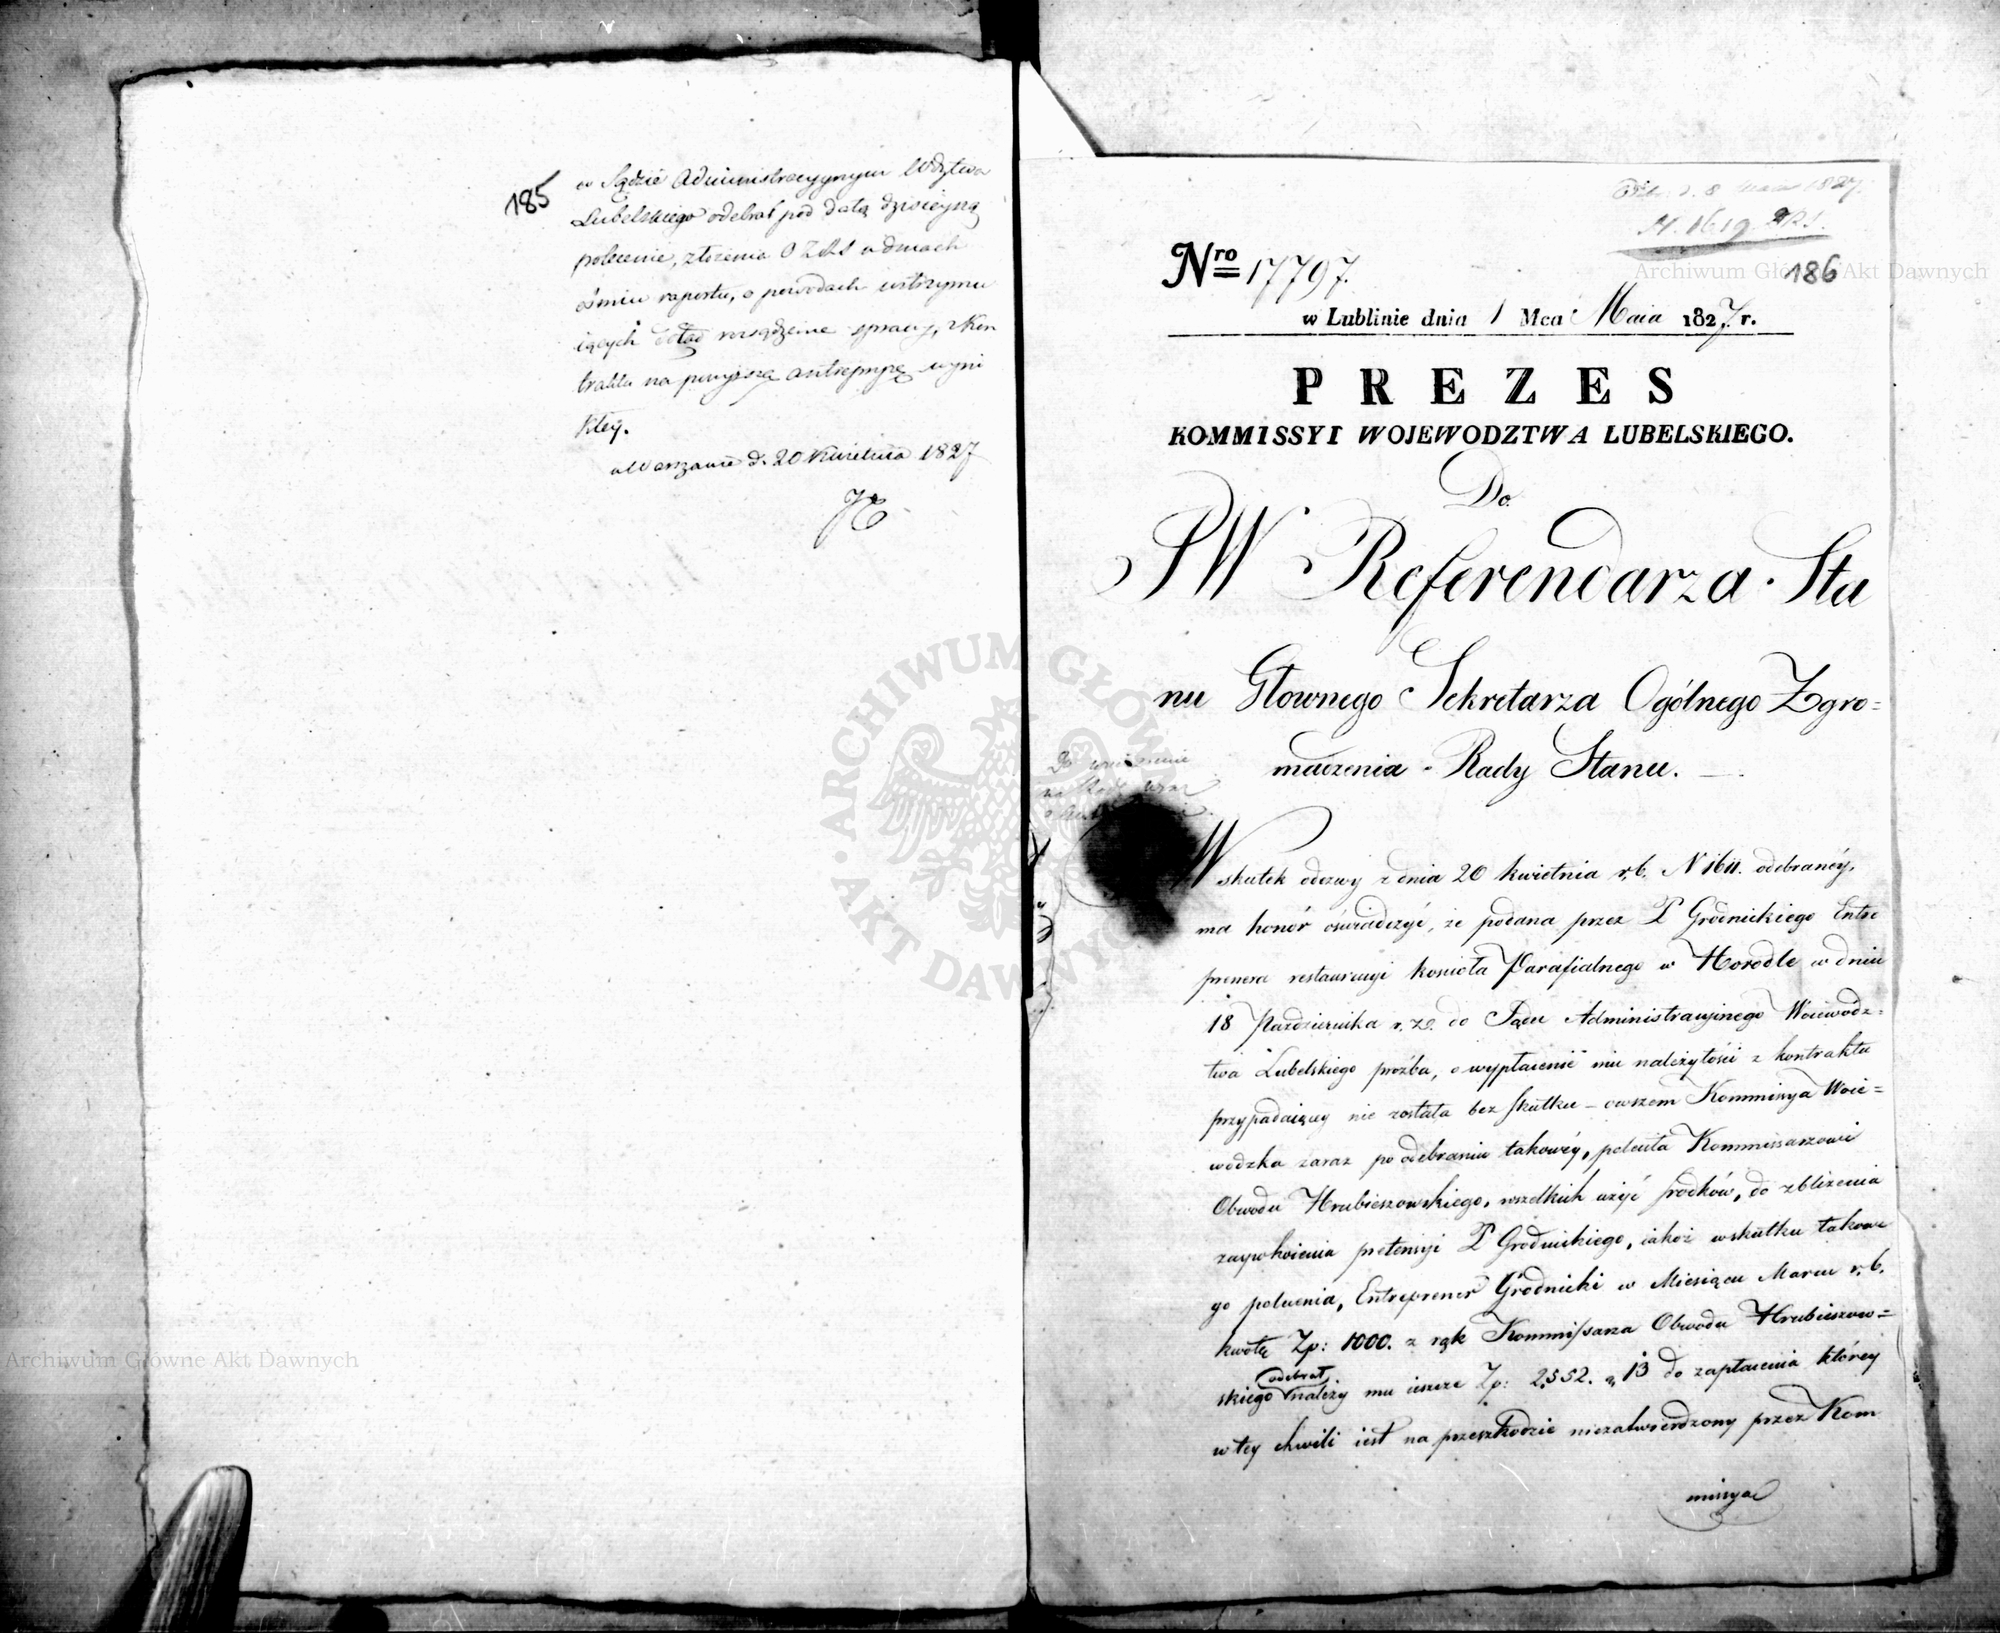 185
w Sądzie Administracyynym Wdztwa
Lubelskiego odebrał pod datą dzisieyszą
polecenie, złożenia O Z R S w dniach
ośmiu raportu, o powodach wstrzymu
iących dotąd rozsądzenie sprawy, z Kon
traktu na powyższą antrepryzę wyni
kłey.
w Warszawie d. 20 Kwietnia 1827
186
8 Maia 1827.
N. 1619
Nro 17797.
w Lublinie dnia 1 Mca Maia 1827 r.
PREZES
KOMMISSYI WOJEWODZTWA LUBELSKIEGO.
Do
JW Referendarza Sta
nu Głownego Sekretarza Ogólnego Zgro=
madzenia Rady Stanu.
Wskutek odezwy z dnia 20 kwietnia r.b. N 1611. odebranéy,
ma honór oświadczyć, że podana przez P Grodnickiego Entre
prenera restauracyi kościoła Parafialnego w Horodle w dniu
18 Października r. z. do Sądu Administracyinego Woiewódz=
twa Lubelskiego prośba, o wypłacenie mu należytości z kontraktu
przypadaiącey nie została bez skutku – owszem Kommissya Woie=
wodzka zaraz po odebraniu takowéy, poleciła Kommissarzowi
Obwodu Hrubieszowskiego, wszelkich użyć środków, do zbliżenia
zaspokoienia pretensyi P Grodnickiego, iakoż w skutku takowe
go polecenia, Entreprener Grodnicki w Miesiącu Marcu r.b.
kwotę Zp: 1000. z rąk Kommissarza Obwodu Hrubieszow=
odebrał
skiego należy mu ieszcze Zp: 2,552. g 13 do zapłacenia którey
w tey chwili iest na przeszkodzie niezatwierdzony przez Kom
missya
Archiwum Główne Akt Dawnych
Archiwum Główne Akt Dawnych
ARCHIWUM GŁÓWNE AKT DAWNYCH